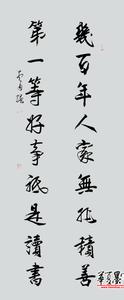 幾百年人家無非積善
第一等好事祇是讀書